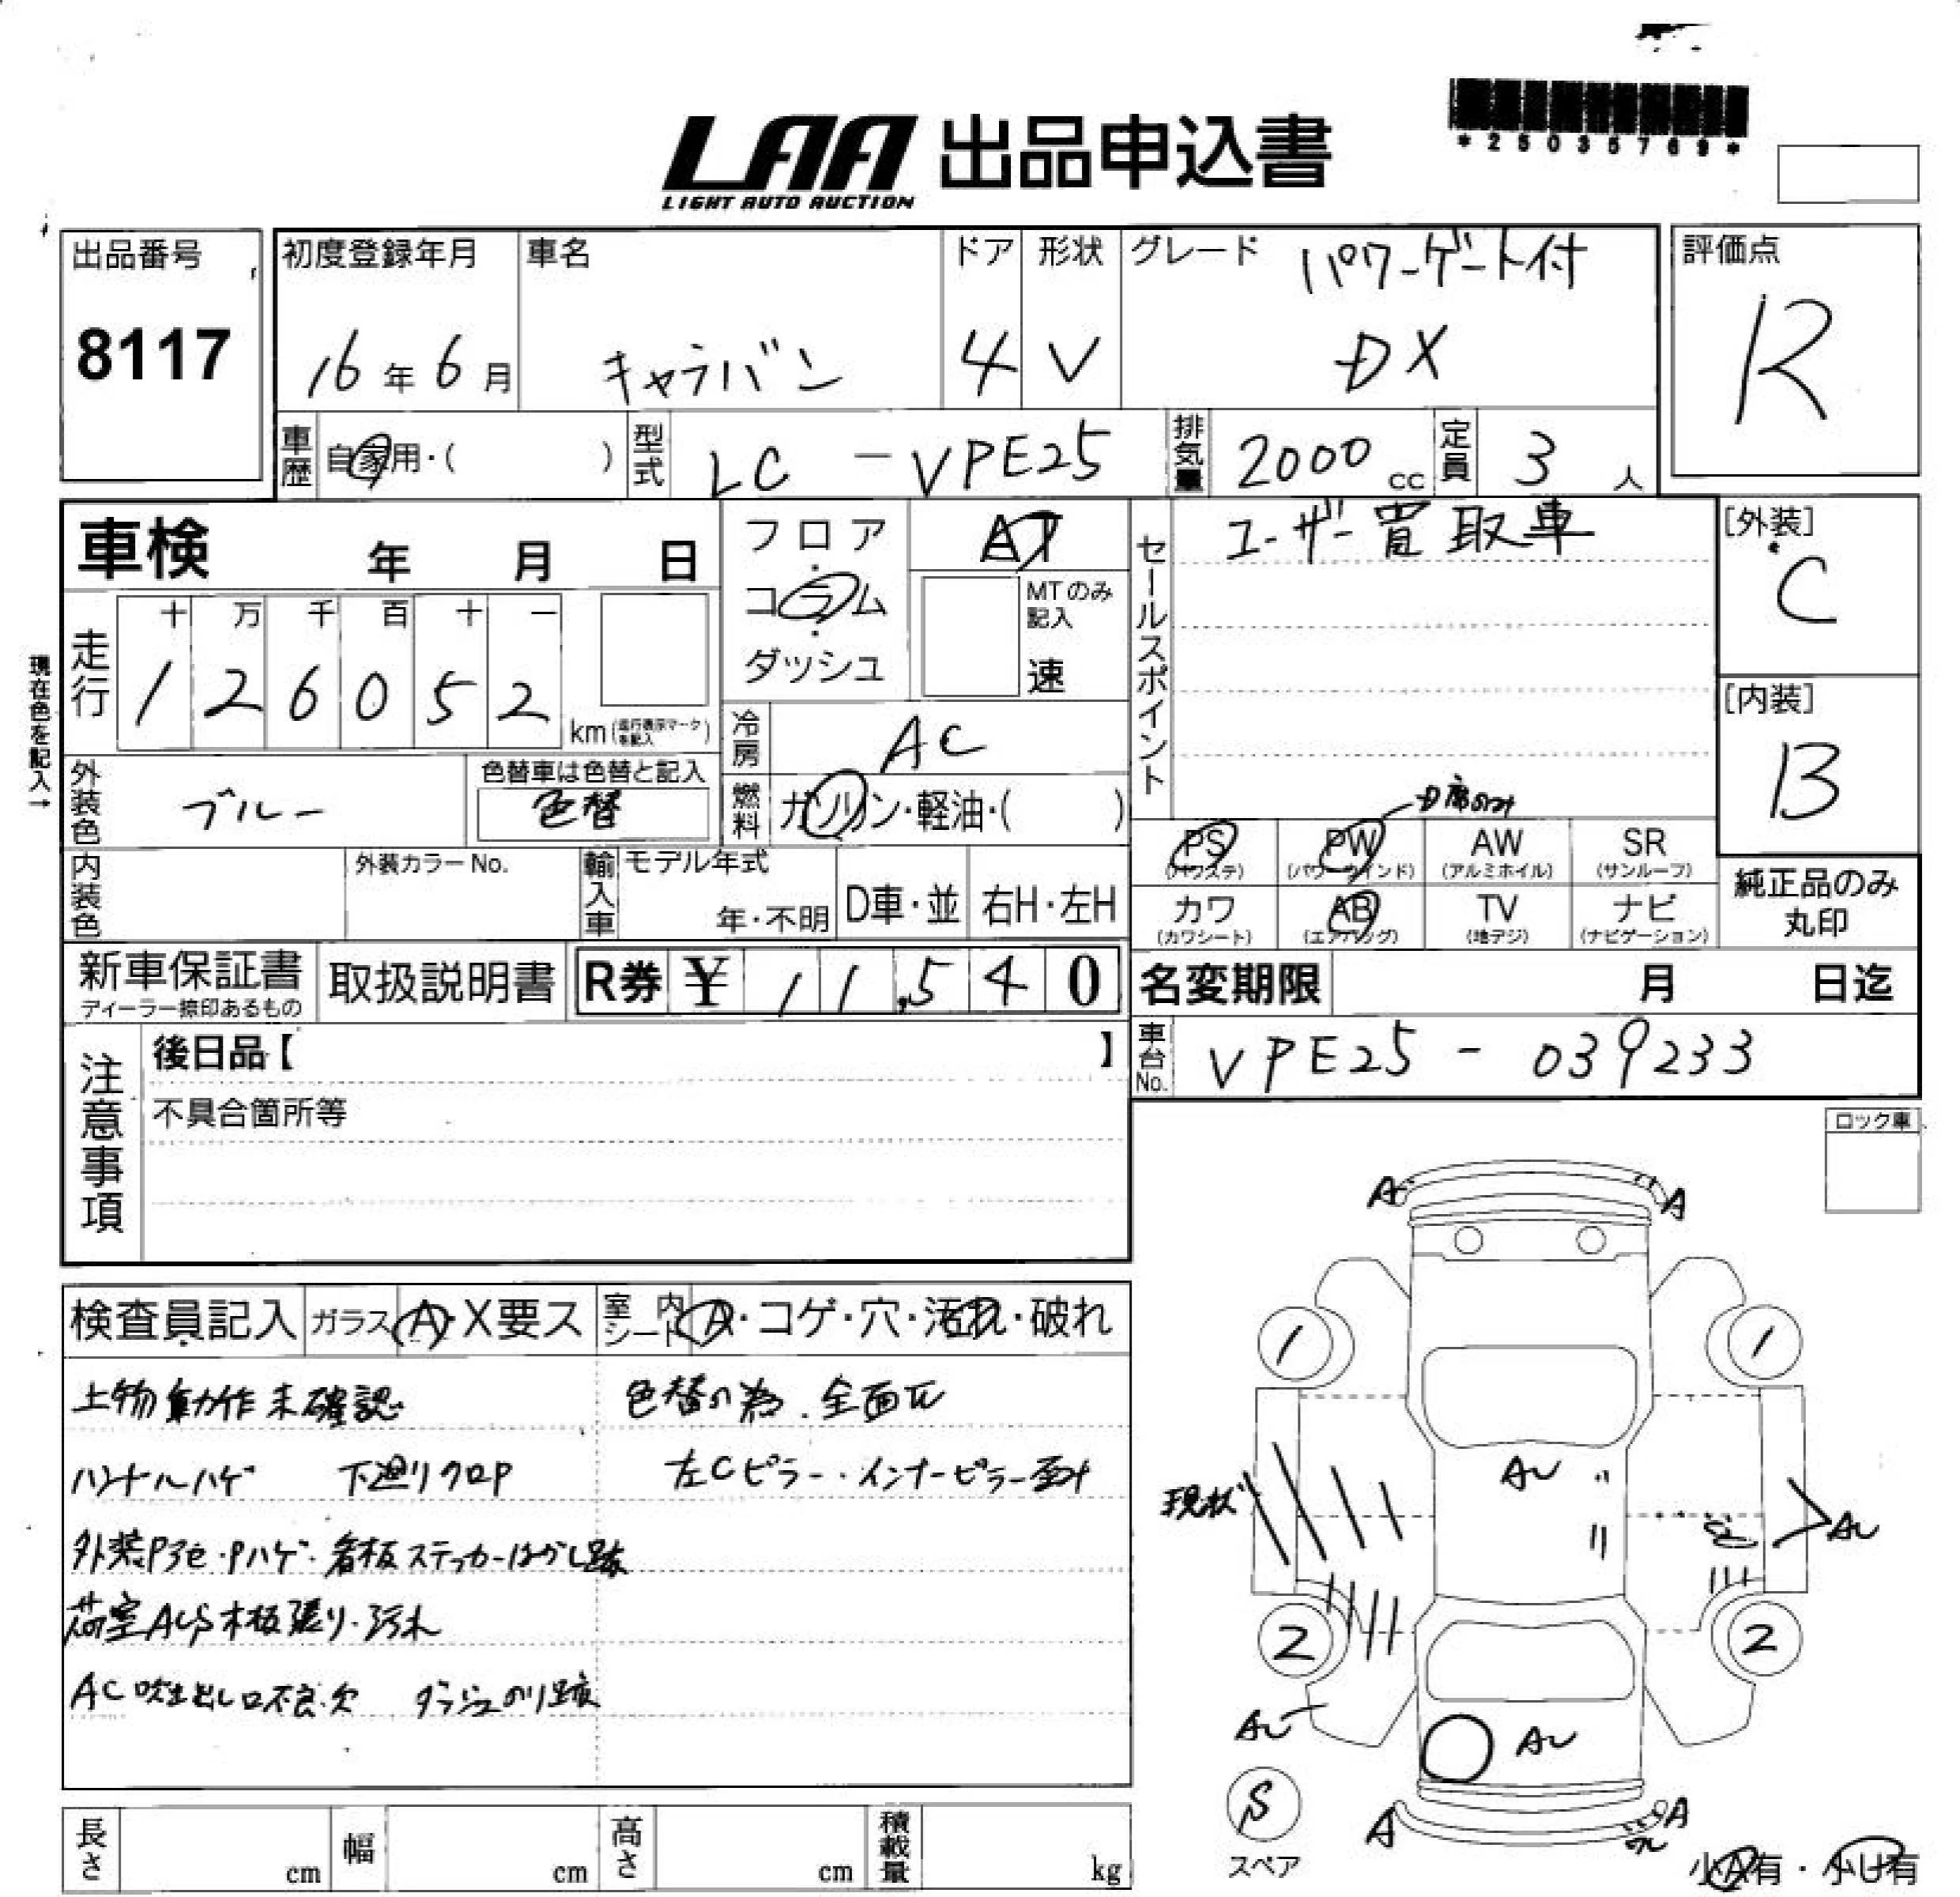 *25035769*
LAA 出品申込書
LIGHT AUTO AUCTION
出品番号
8117
初度登録年月
16年6月
車名
キャラバン
ドア
4
形状
V
グレード
パワーゲート付
DX
評価点
R
車歴
自家用・( )
型式
LC-VPE25
排気量
2000cc
定員
3人
車検 年 月 日
フロア・コラム・ダッシュ
AT
MTのみ記入
速
セールスポイント
ユーザー買取車
[外装]
C
[内装]
B
現在色を記入→
走行
十万千百十一
126052
km(走行表示マークを記入)
冷房
AC
外装色
ブルー
色替車は色替と記入
色替
燃料
ガソリン・軽油・( )
D席のみ
PS (パワステ)
PW (パワーウインド)
AW (アルミホイル)
SR (サンルーフ)
カワ (カワシート)
AB (エアバッグ)
TV (地デジ)
ナビ (ナビゲーション)
純正品のみ丸印
内装色
外装カラーNo.
輸入車
モデル年式
年・不明
D車・並
右H・左H
新車保証書
ディーラー捺印あるもの
取扱説明書
R券 ¥ 11,540
名変期限 月 日迄
車台No.
VPE25-039233
注意事項
後日品【 】
不具合箇所等
ロック車
検査員記入
ガラス A・X要ス
室内シート A・コゲ・穴・汚れ・破れ
上物動作未確認
色替の為、全面
ハンドルハゲ 下廻りクロP
左Cピラー・インナーピラー
外装P3色・Pハゲ・看板ステッカーはがし跡
荷室AUS木板張り・汚れ
AC吹き出し口不良・欠 ダッシュのり跡
A
A
1
1
現状
AU
AU
2
2
AU
AU
S
スペア
A
A
小A有・小U有
長さ cm
幅 cm
高さ cm
積載量 kg